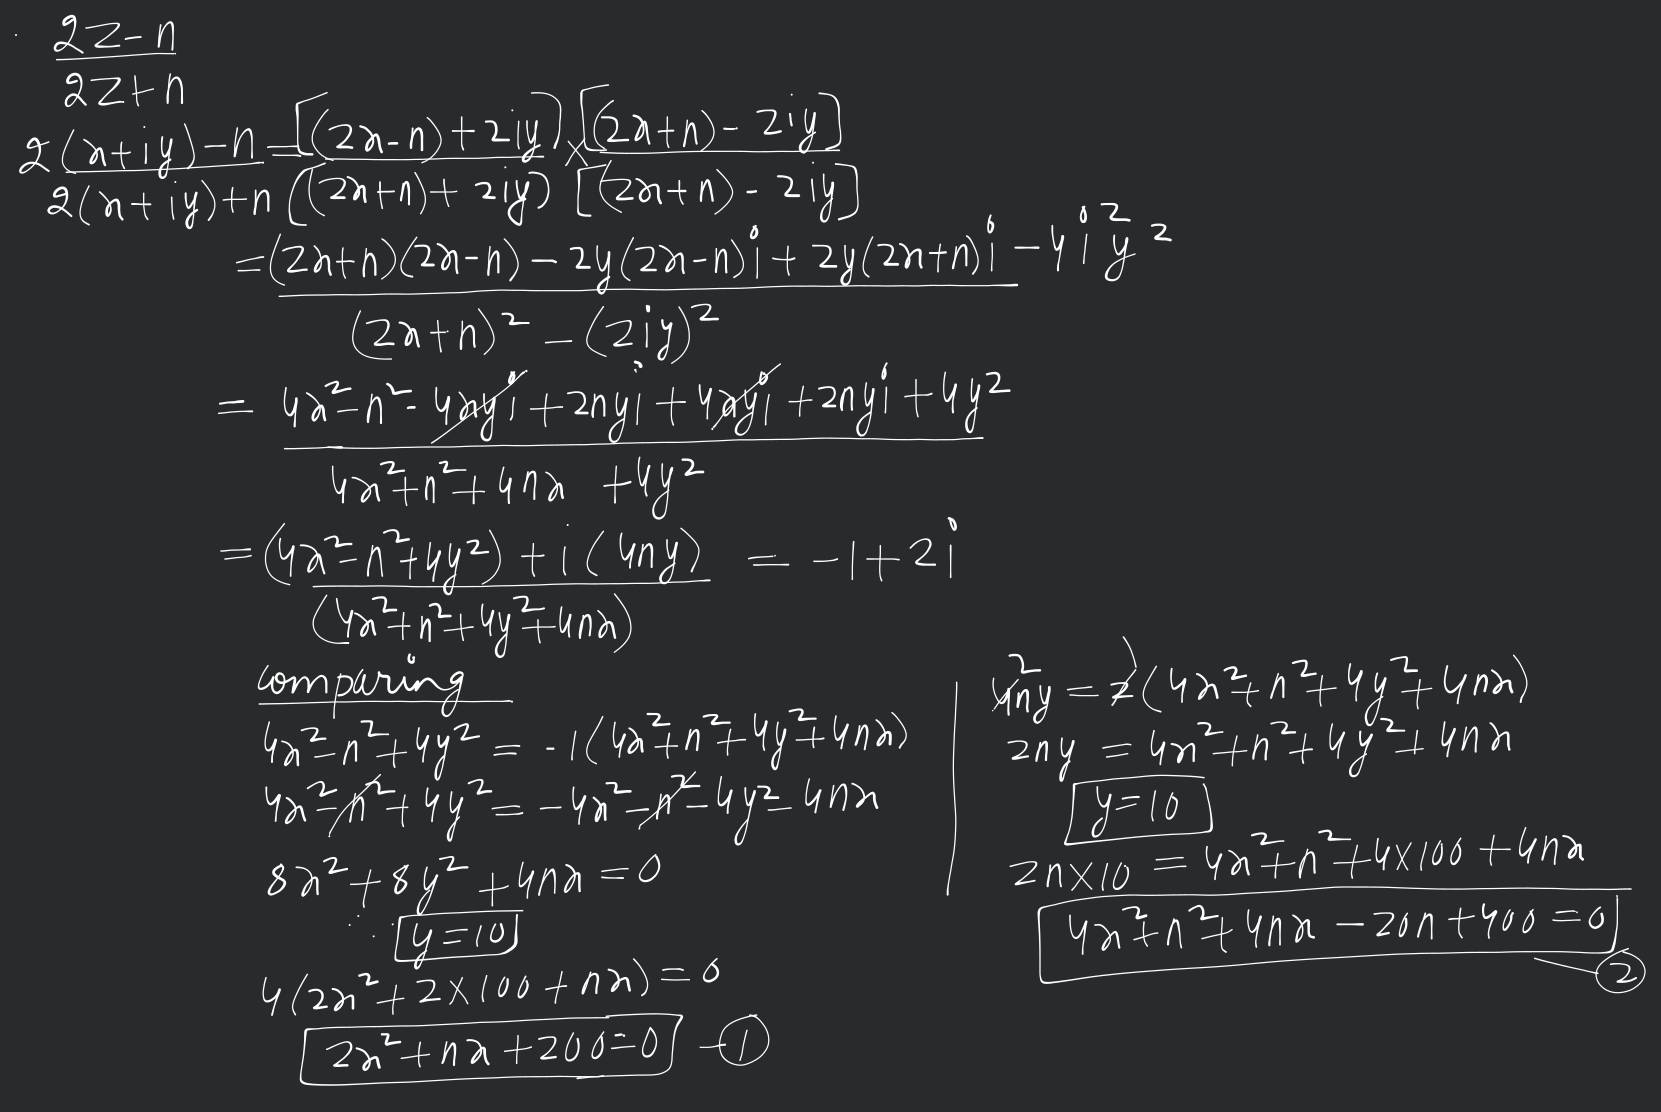 2z-n
2z+n
2(x+iy)-n = [(2x-n)+2iy] × [(2x+n)-2iy]
2(x+iy)+n [(2x+n)+2iy) [(2x+n)-2iy]
= (2x+n)(2x-n) - 2y(2x-n)i + 2y(2x+n)i - 4i²y²
(2x+n)² - (2iy)²
= 4x²-n²-4xyi+2nyi+4xyi+2nyi+4y²
4x²+n²+4nx +4y²
= (4x²-n²+4y²) + i(4ny) = -1+2i
(4x²+n²+4y²+4nx)
comparing
4x²-n²+4y² = -1(4x²+n²+4y²+4nx)
4x²-n²+4y² = -4x²-n²-4y²-4nx
8x²+8y²+4nx = 0
∵ y=10
4(2x²+2×100+nx) = 0
2x²+nx+200=0 -①
2
4ny = 2(4x²+n²+4y²+4nx)
2ny = 4x²+n²+4y²+4nx
y=10
2n×10 = 4x²+n²+4×100+4nx
4x²+n²+4nx-20n+400=0
②